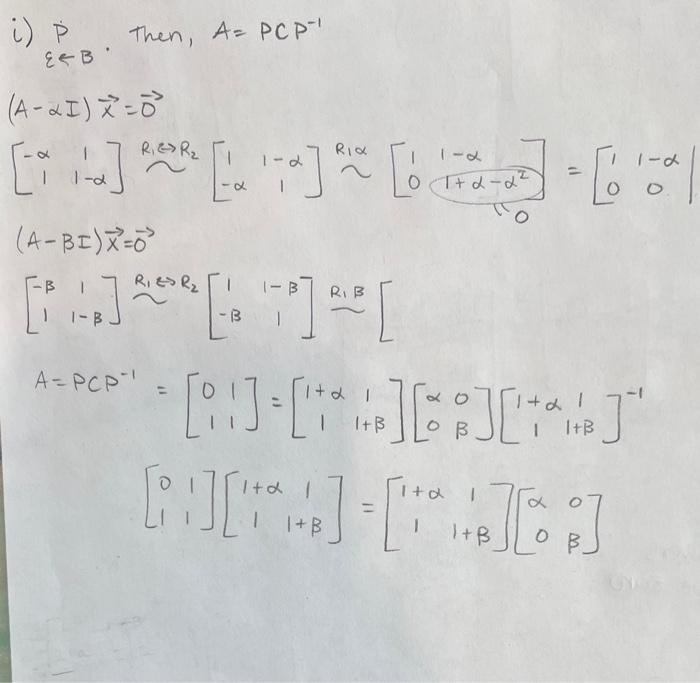 i) P. Then, A = PCP⁻¹
ε←B
(A-αI) x⃗ = 0⃗
[-α 1; 1 1-α] R₁↔R₂ ~ [1 1-α; -α 1] R₁α ~ [1 1-α; 0 1+α-α²] = [1 1-α; 0 0|
"0
(A-βI) x⃗ = 0⃗
[-β 1; 1 1-β] R₁↔R₂ ~ [1 1-β; -β 1] R₁β ~ [
A = PCP⁻¹ = [0 1; 1 1] = [1+α 1; 1 1+β] [α 0; 0 β] [1+α 1; 1 1+β]⁻¹
[0 1; 1 1] [1+α 1; 1 1+β] = [1+α 1; 1 1+β] [α 0; 0 β]